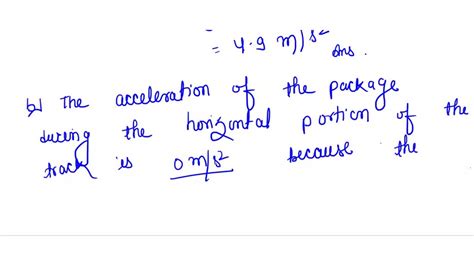 = 4.9 m/s² Ans.
b) The acceleration of the package
during the horizontal portion of the
track is 0 m/s² because the